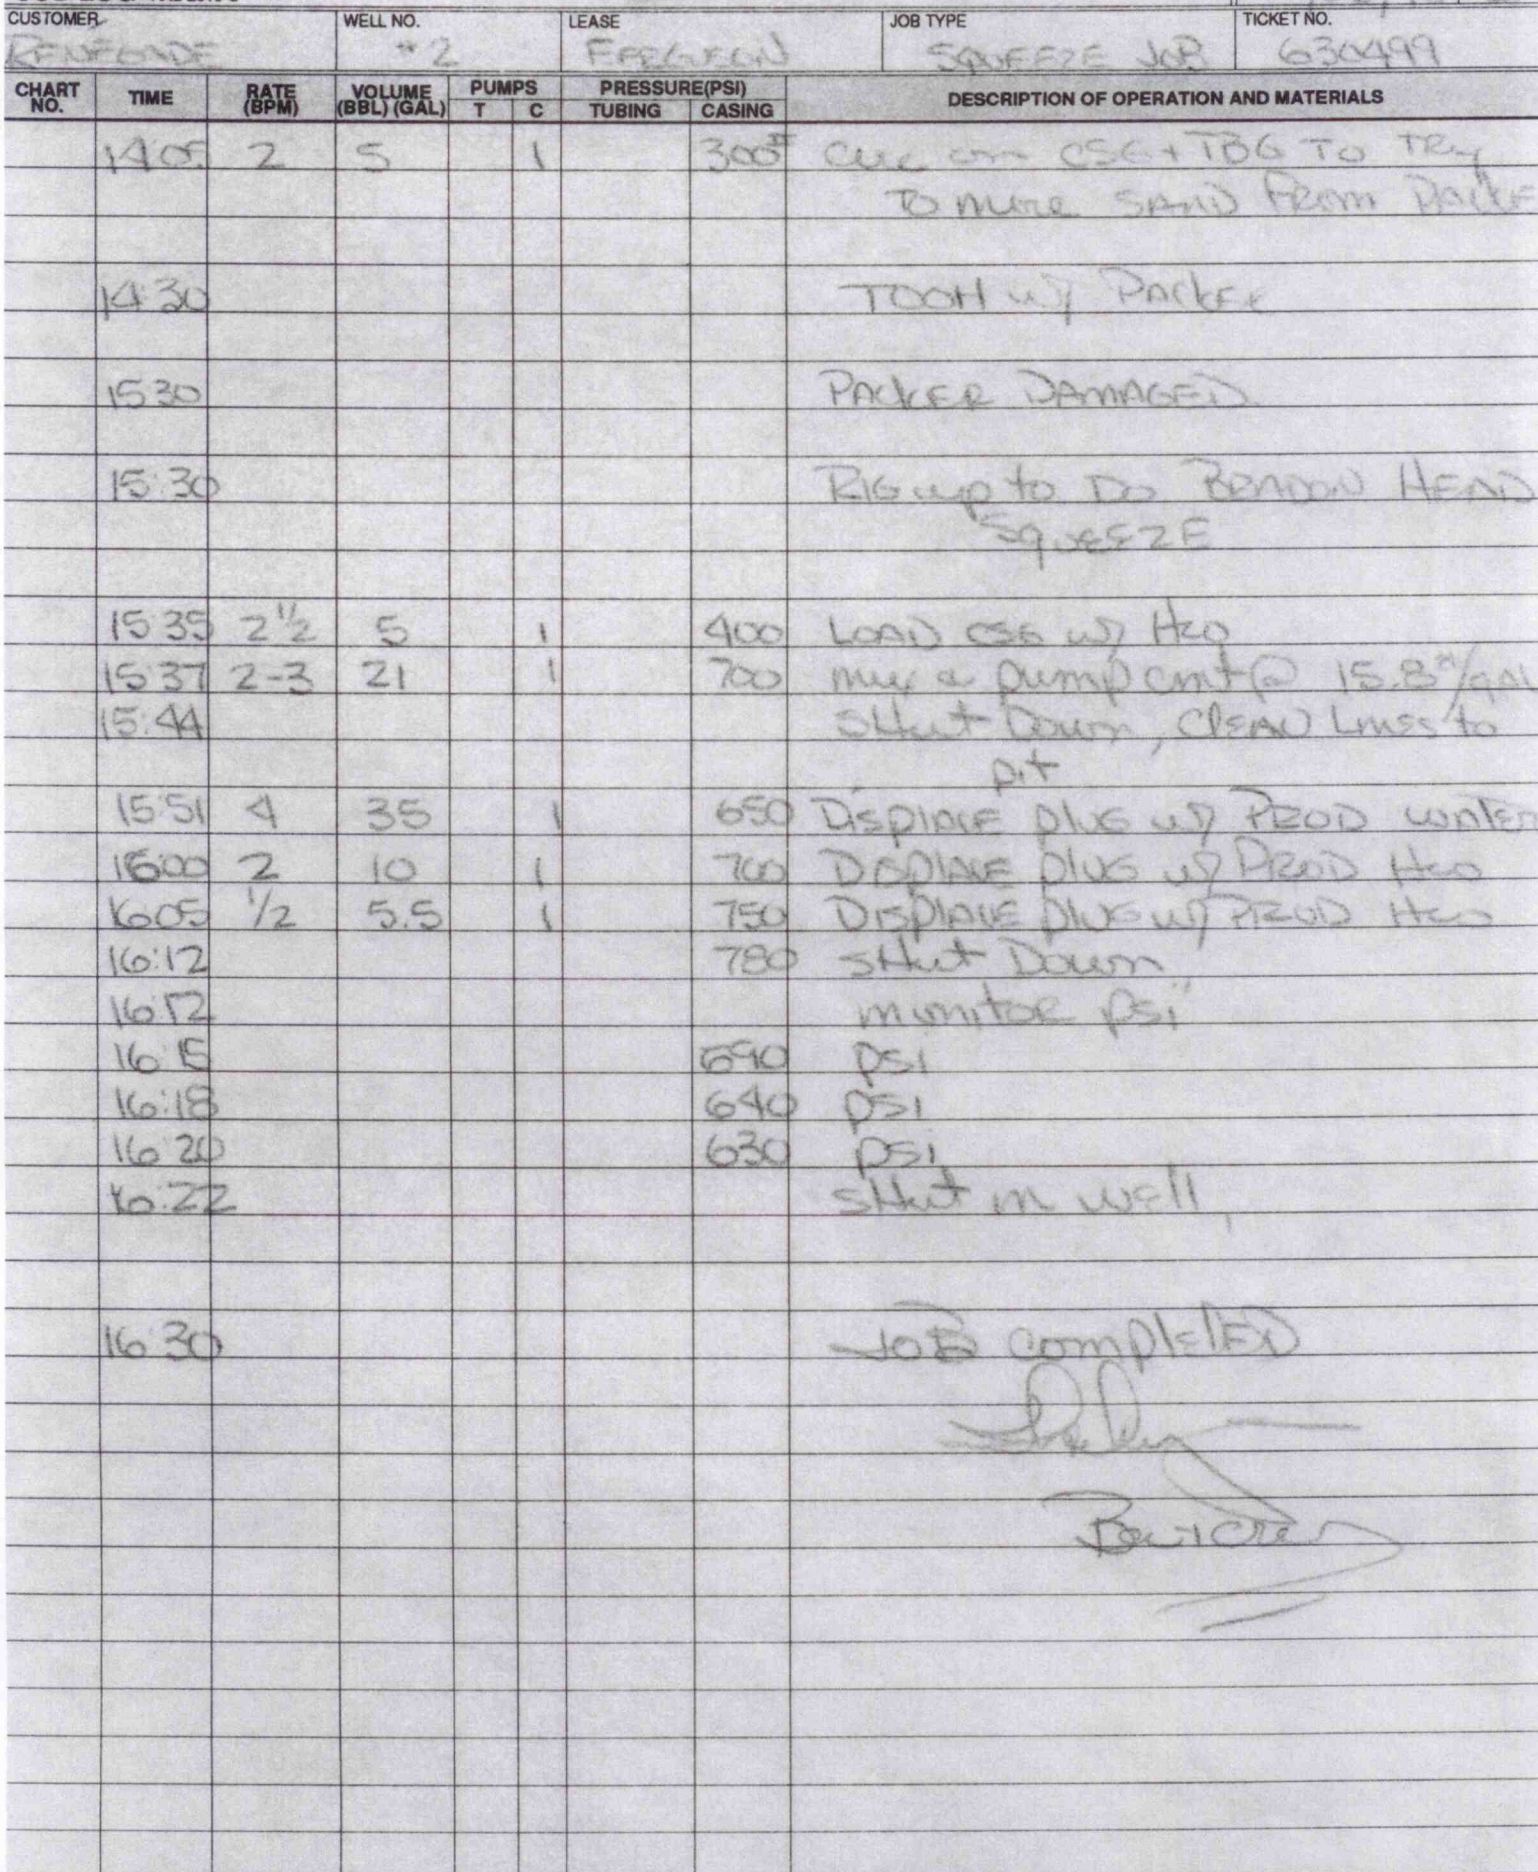 CUSTOMER WELL NO. LEASE JOB TYPE TICKET NO.
RENEGADE #2 FERGUSON SQUEEZE JOB 630499
CHART NO. TIME RATE (BPM) VOLUME (BBL) (GAL) PUMPS T C PRESSURE(PSI) TUBING CASING DESCRIPTION OF OPERATION AND MATERIALS
14:05 2 5 1 300# CIRC CSG + TBG TO TRY
TO move SAND FROM PACKE
14:30 TOOH w/ PACKER
1530 PACKER DAMAGED
15:30 RIG up to Do BRADON HEAD
SqUEEZE
15:35 2 1/2 5 1 400 LOAD CSG w/ H2O
15:37 2-3 21 1 700 mix & pump cmt @ 15.8#/gal
15:44 SHut Down, ClEAN LINES to
pit
15:51 4 35 1 650 DisplACE plUG w/ PROD WATER
1600 2 10 1 700 DISPlACE plUG w/ PROD H2O
1605 1/2 5.5 1 750 DISPlACE plUG w/ PROD H2O
16:12 780 SHut Down
16:12 monitoR psi
16:15 690 psi
16:18 640 psi
16:20 630 psi
16:22 SHut in wEll
16:30 JOB complETED